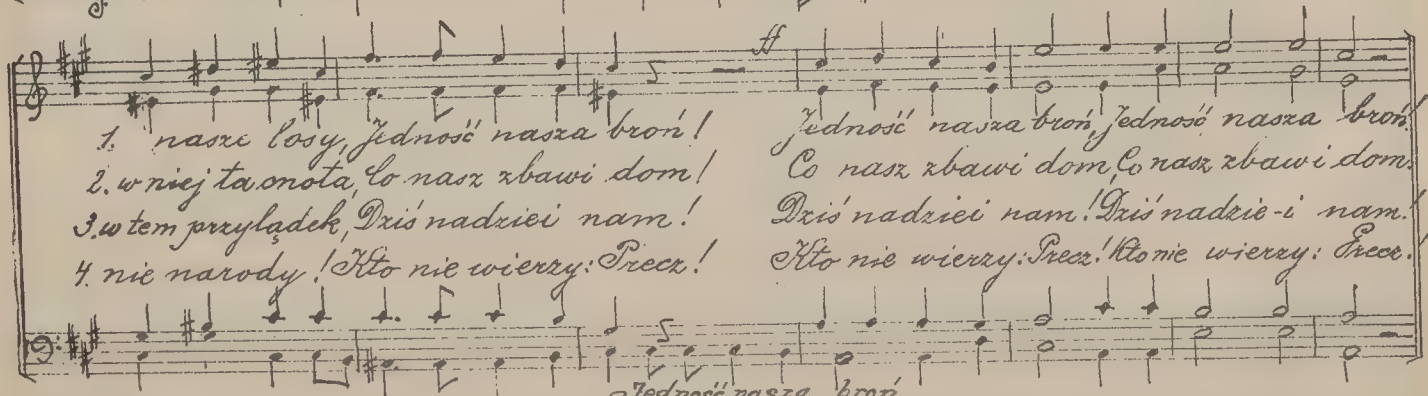 ff
1. nasze losy, Jedność nasza broń! Jedność nasza broń, Jedność nasza broń!
2. w niej ta cnota, Co nasz zbawi dom! Co nasz zbawi dom, Co nasz zbawi dom.
3. w tem przylądek, Dziś nadziei nam! Dziś nadziei nam! Dziś nadzie-i nam!
4. nie narody! Kto nie wierzy: Precz! Kto nie wierzy: Precz! Kto nie wierzy: Precz!
Jedność nasza broń